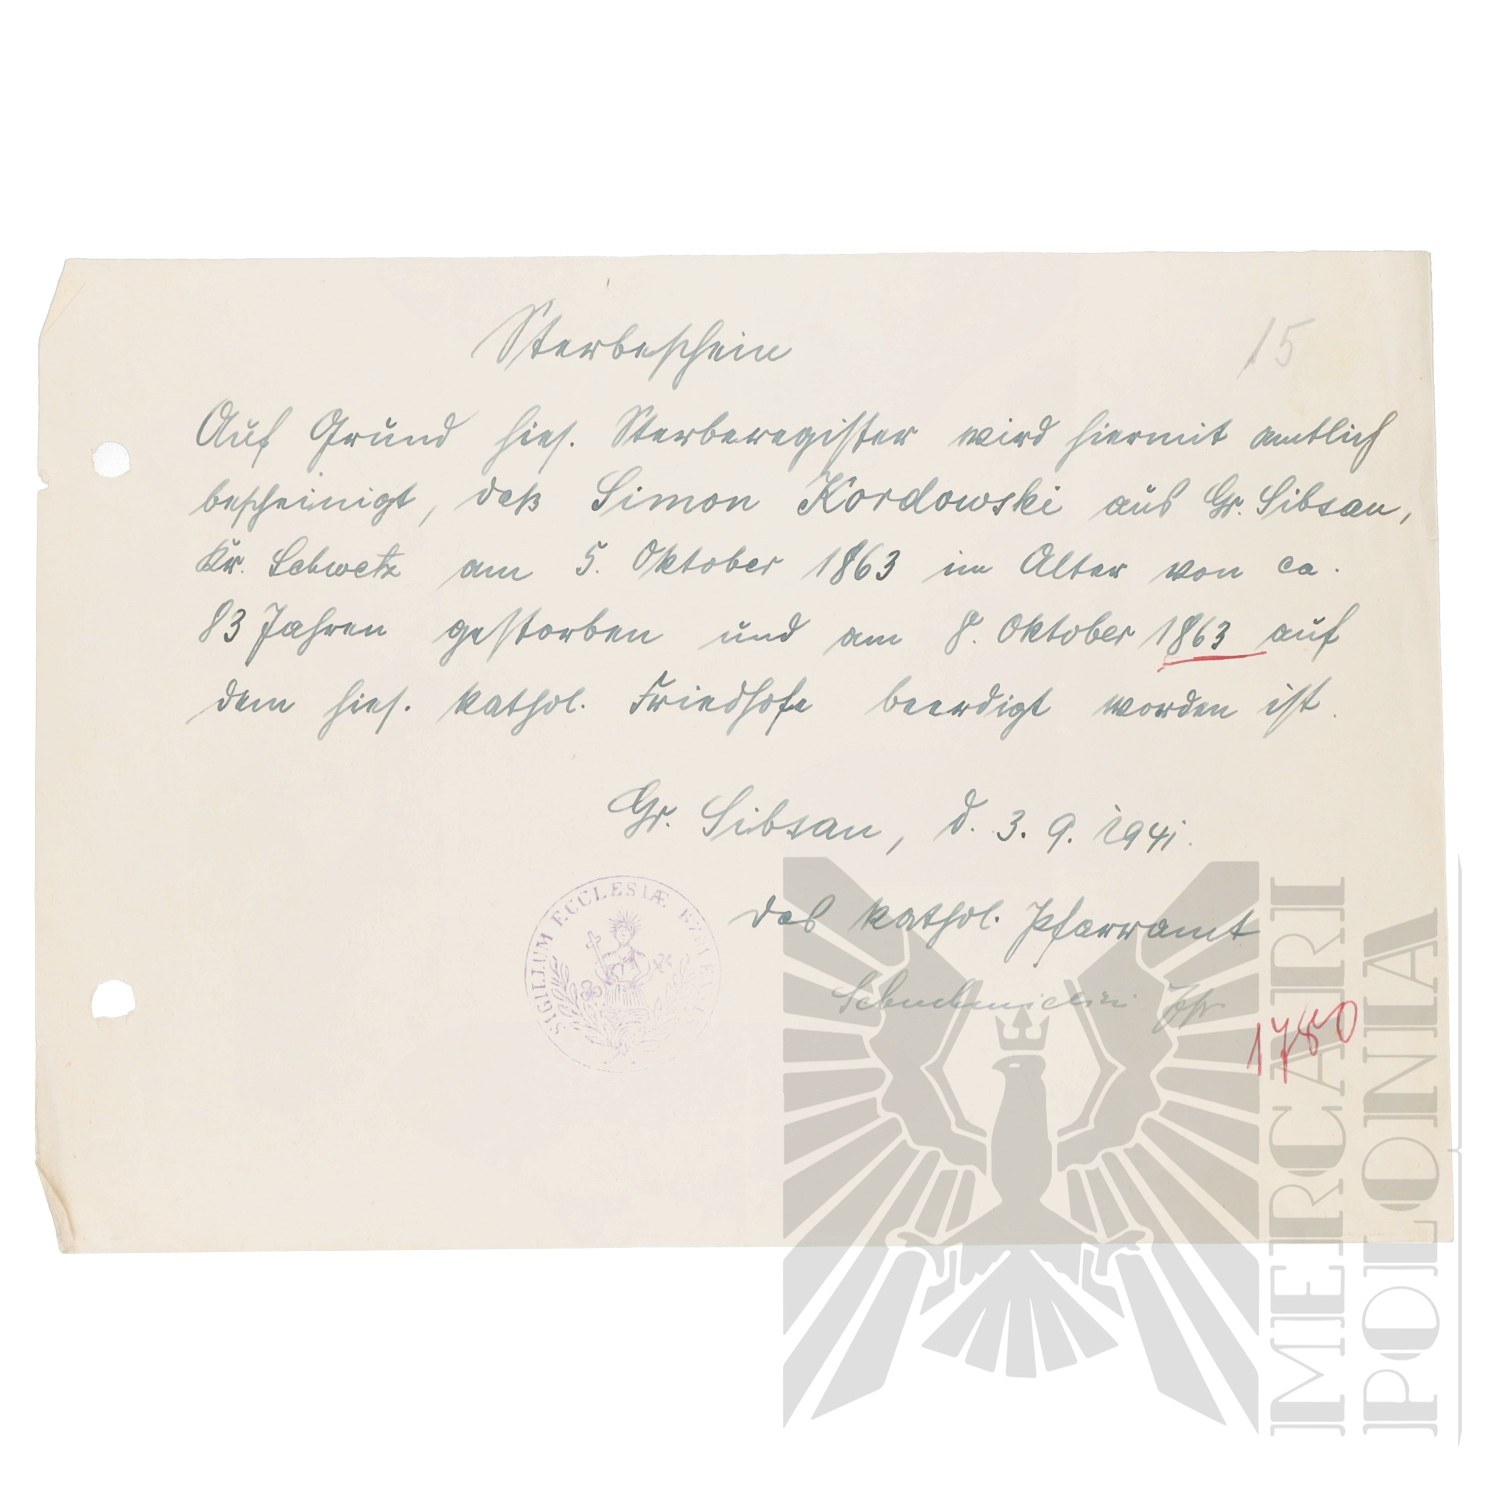 Sterbeschein
15
Auf Grund hies. Sterberegister wird hiermit amtlich
bescheinigt, daß Simon Kordowski aus Gr. Sibsau,
Kr. Schwetz am 5. Oktober 1863 im Alter von ca.
83 Jahren gestorben und am 8. Oktober 1863 auf
dem hies. kathol. Friedhofe beerdigt worden ist.
Gr. Sibsau, d. 3. 9. 1941.
Das kathol. Pfarramt
SIGILLUM ECCLESIÆ
1780
MERCARI
POLONIA